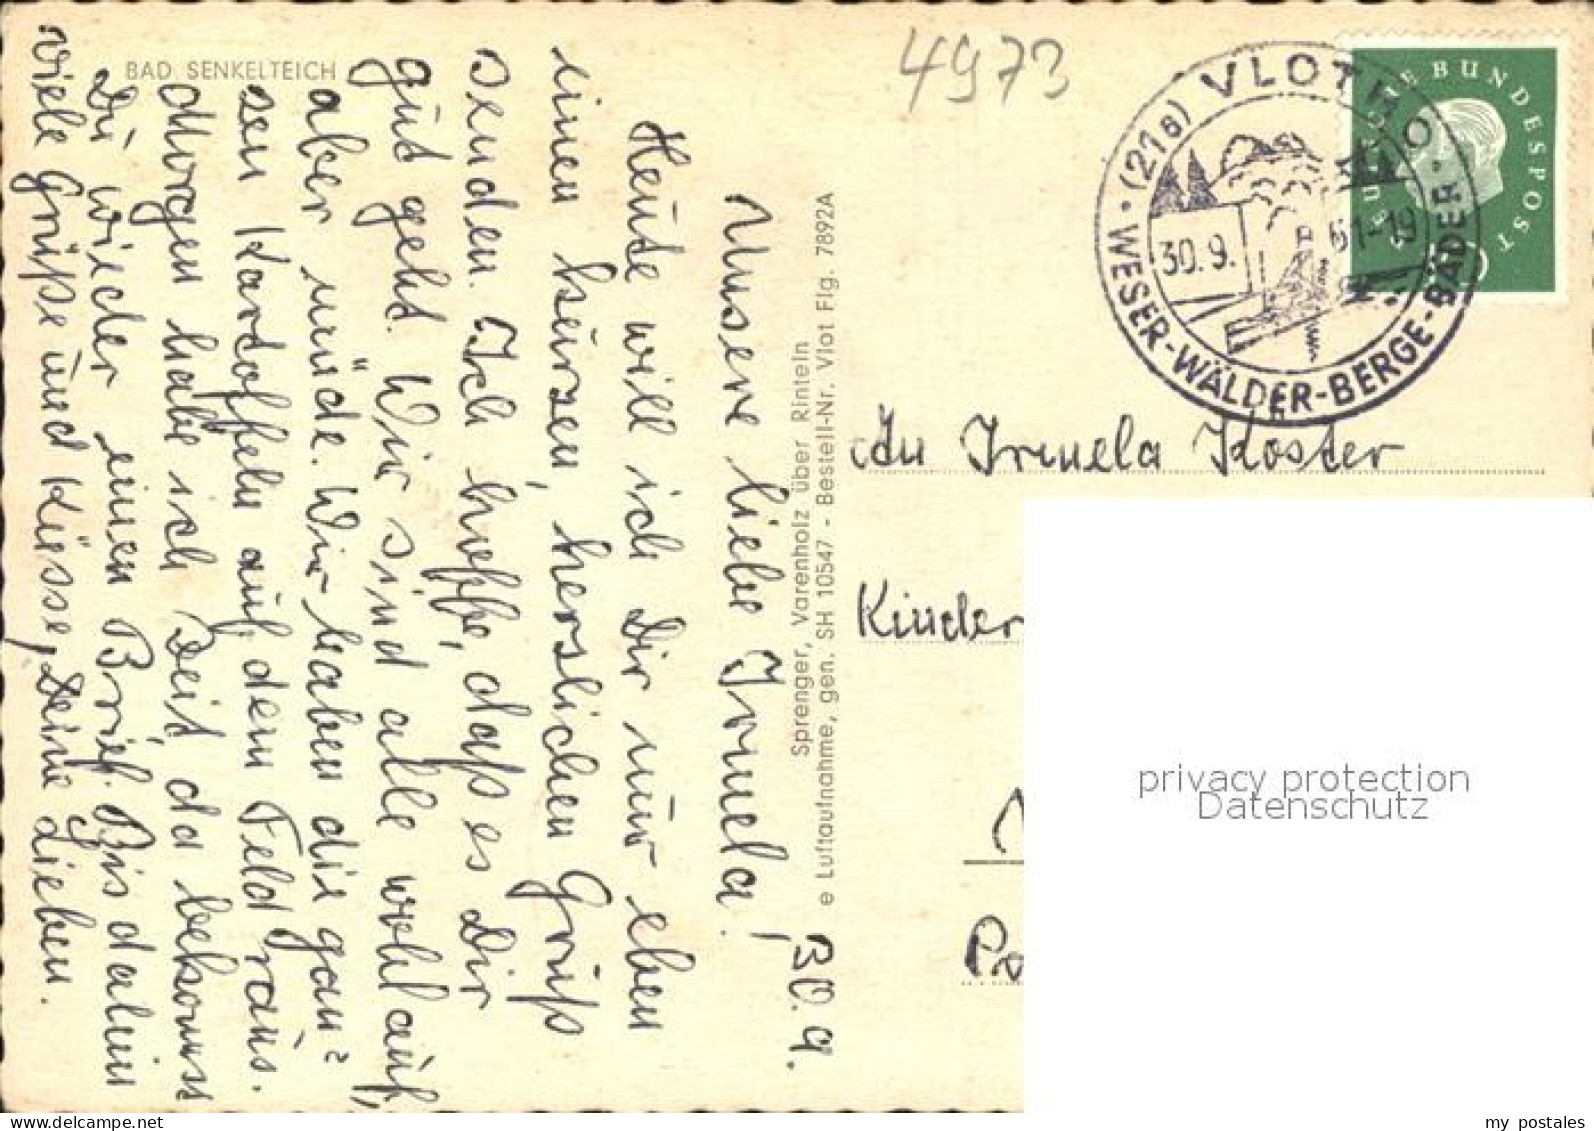 BAD SENKELTEICH
4973
(21a) VLOTHO
30.9. 61-19
WESER-WÄLDER-BERGE-BÄDER
DEUTSCHE BUNDESPOST
30.9.
Unsere liebe Irmela!
Heute will ich Dir nur eben
einen kurzen, herzlichen Gruß
senden. Ich hoffe, daß es Dir
gut geht. Wir sind alle wohlauf,
aber müde. Wir haben die gan=
zen Kartoffeln auf dem Feld raus.
Morgen habe ich Zeit, da bekommst
Du wieder einen Brief. Bis dahin
viele Grüße und Küsse, Deine Lieben.
Sprenger, Varenholz über Rinteln
e Luftaufnahme, gen. SH 10547 - Bestell-Nr. Vlot Flg. 7892A
An Irmela Koster
Kinder
privacy protection
Datenschutz
my postales